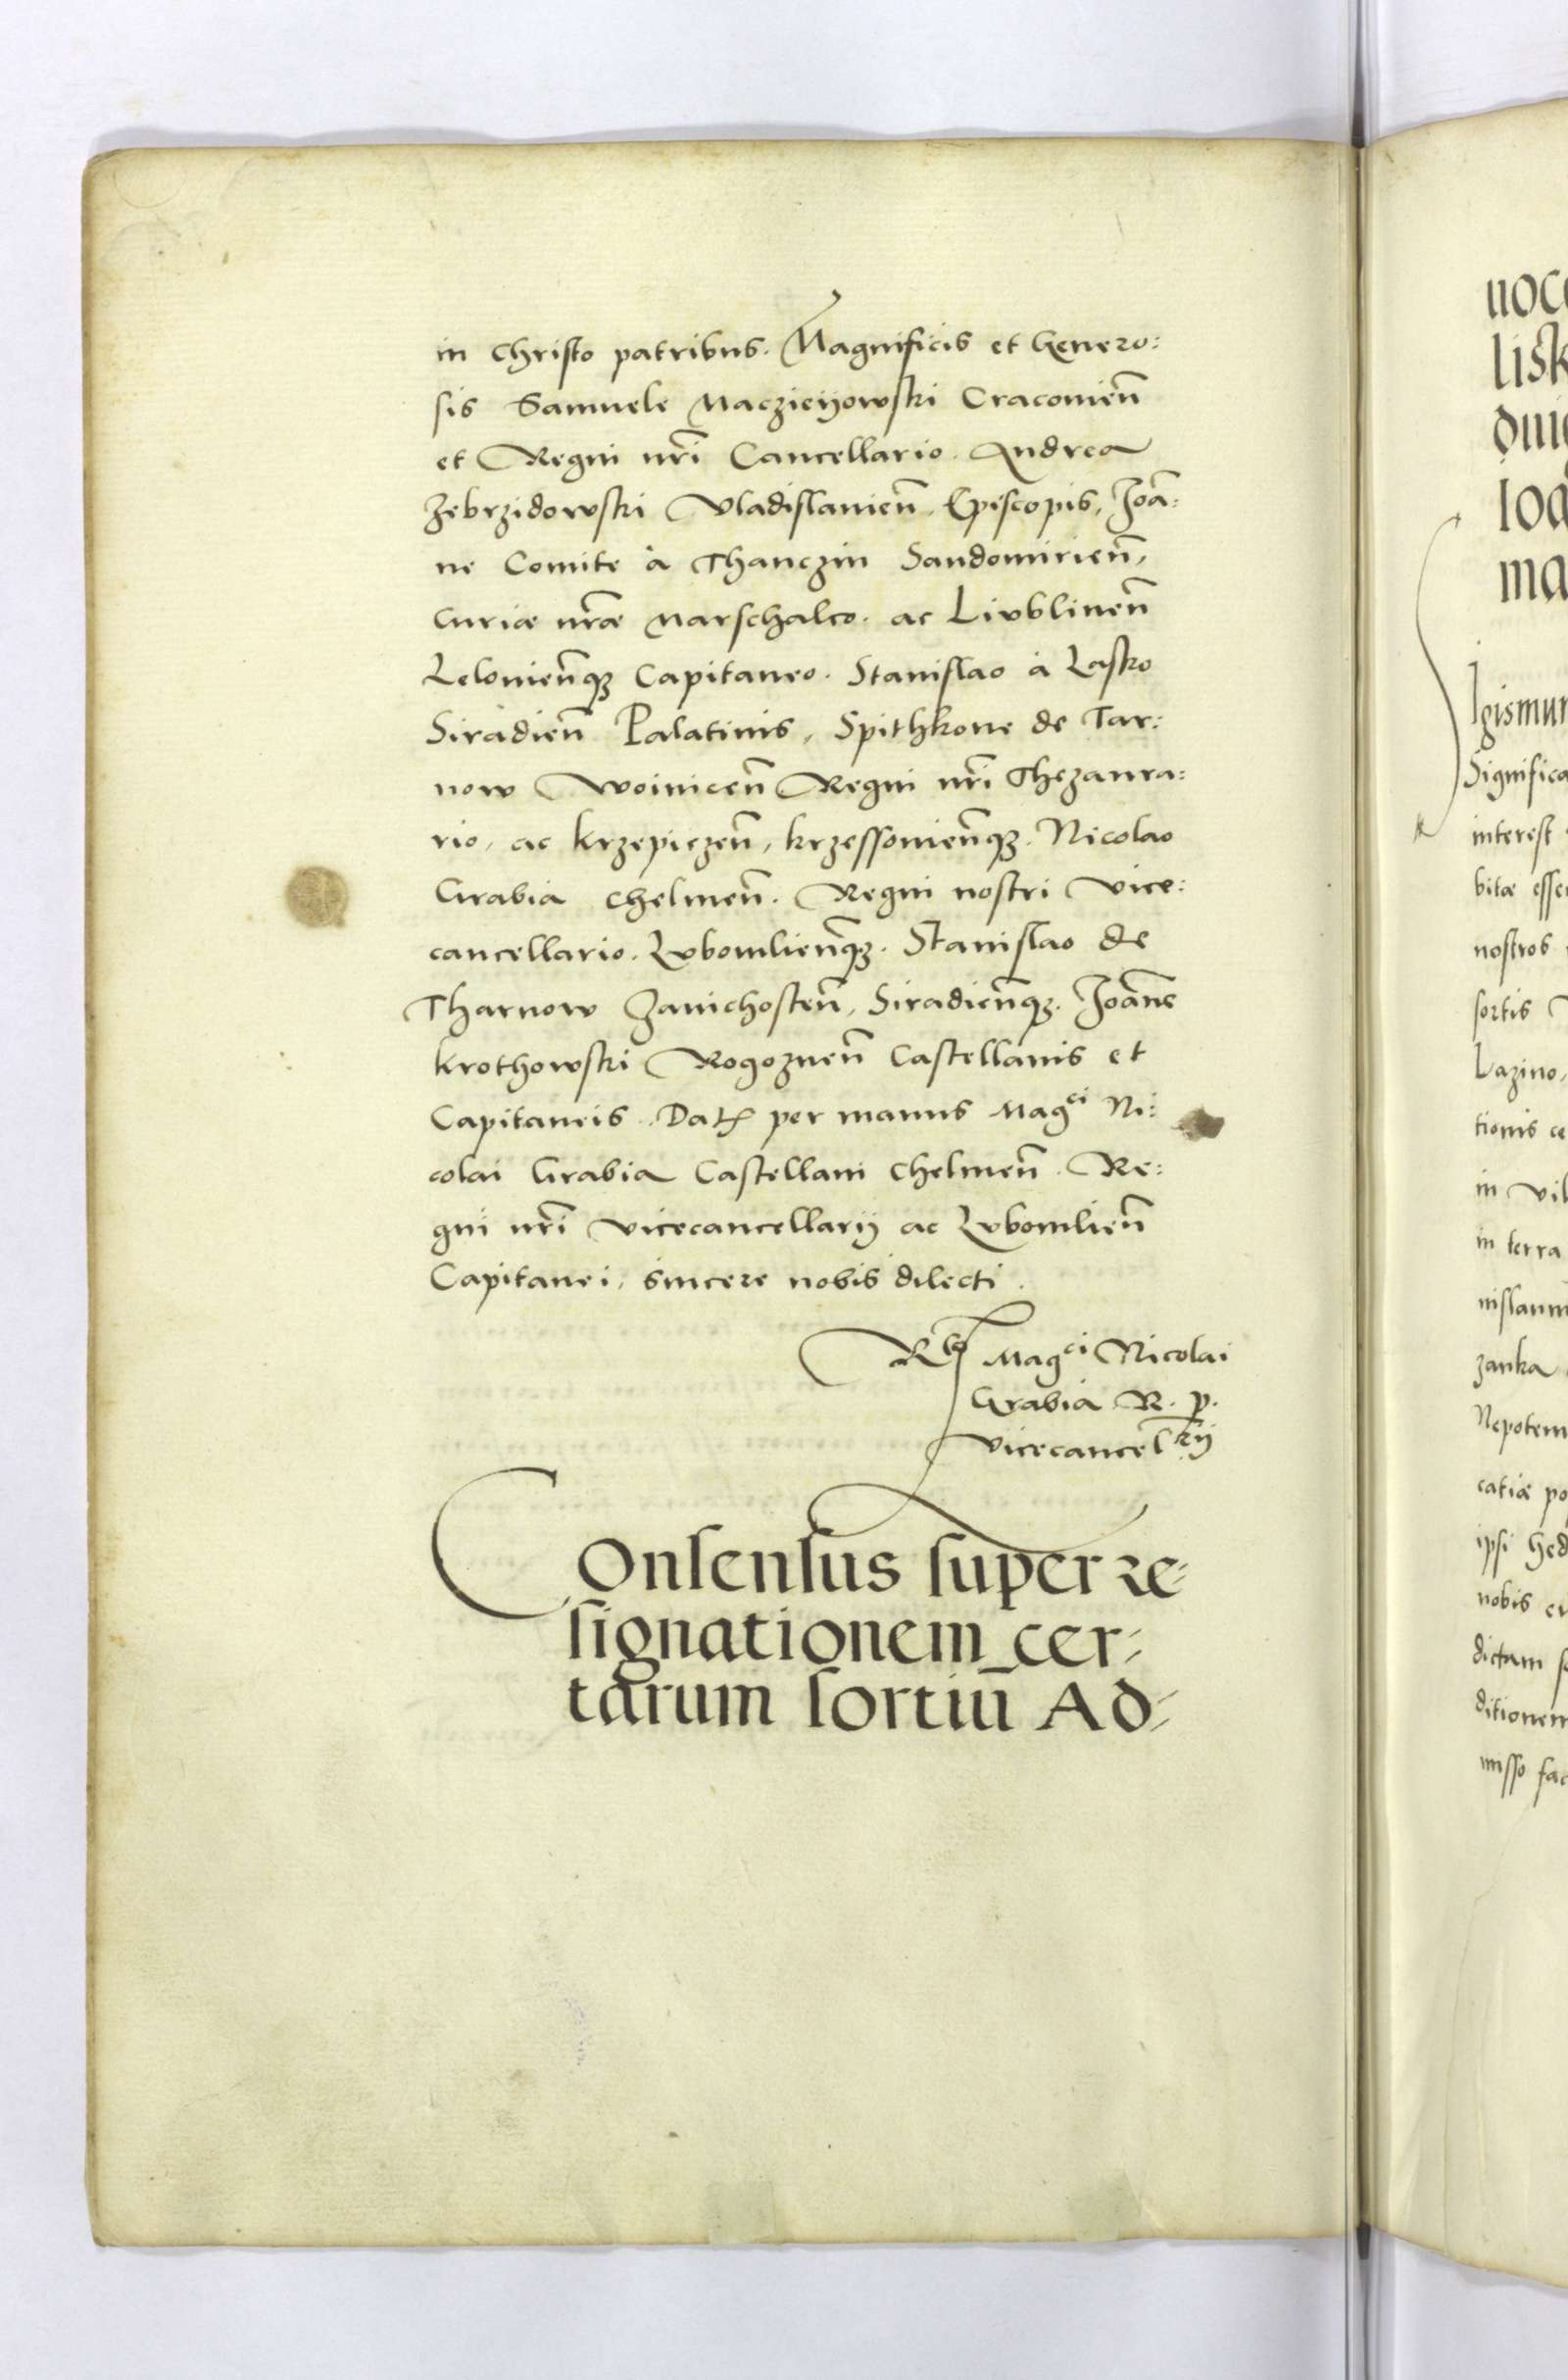 in Christo patribus. Magnificis et Genero:
sis Samuele Maczieyowski Cracovien̄
et Regni nr̄i Cancellario. Andrea
Zebrzidowski Vladislavien̄. Episcopis, Joā:
ne Comite à Thanczin Sandomirien̄,
Curiæ nr̄æ Marschalco. ac Livblinen̄
Lelovien̄qꝫ Capitaneo. Stanislao à Lasko
Siradien̄ Palatinis, Spithkone de Tar:
now Woinicen̄ Regni nr̄i Thezaura:
rio, ac Krzepiczen̄, Krzessovien̄qꝫ. Nicolao
Grabia Chelmen̄. Regni nostri Vice:
cancellario. Lvbomlien̄qꝫ. Stanislao de
Tharnow Zavichosten̄, Siradien̄qꝫ. Joāne
Krothowski Rogoznen̄ Castellanis et
Capitaneis. Datꝭ per manus Mag^ci Ni:
colai Grabia Castellani Chelmen̄. Re:
gni nr̄i Vicecancellarij ac Lvbomlien̄
Capitanei, sincere nobis dilecti.
R^tio Mag^ci Nicolai
Grabia R. P.
Vicecancel^rij
Consensus super re-
signationem cer-
tarum sortiū Ad-
noc
lisk
qui
loa
ma
Igismun
Significa
interest
bitæ esse
nostros
sortis
Lazino,
tionis ce
in vil
in terra
nislaum
zanka
Nepotem
catiæ po
ipsi hed
nobis
dictam
ditionem
misso fac